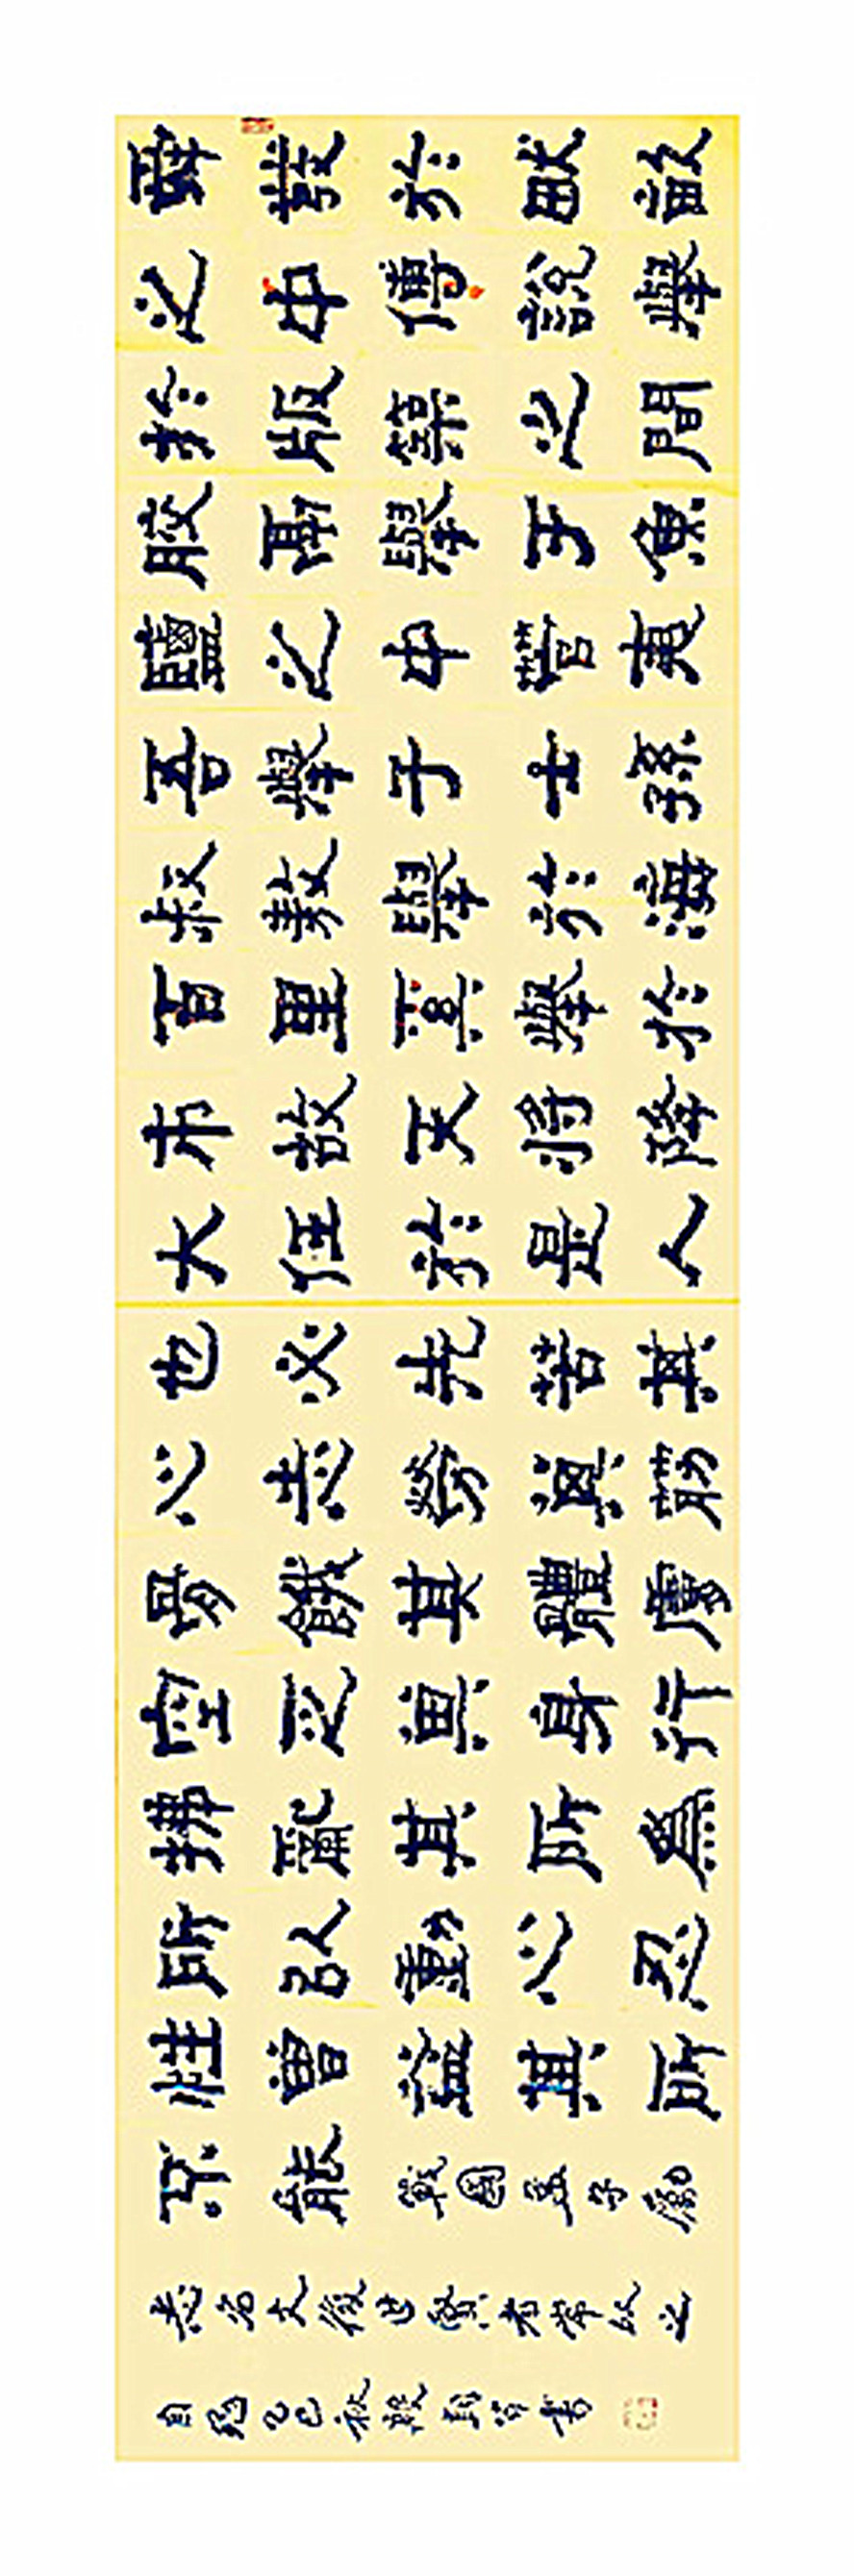 舜發於畎畝
之中傅說舉
於版築之間
膠鬲舉于魚
鹽之中管夷
吾舉于士孫
叔敖舉於海
百里奚舉於
市故天將降
大任於是人
也必先苦其
心志勞其筋
骨餓其體膚
空乏其身行
拂亂其所為
所以動心忍
性曾益其所
不能戰國孟子勵
志名文後世賢者常以之
自勉乙巳秋段書